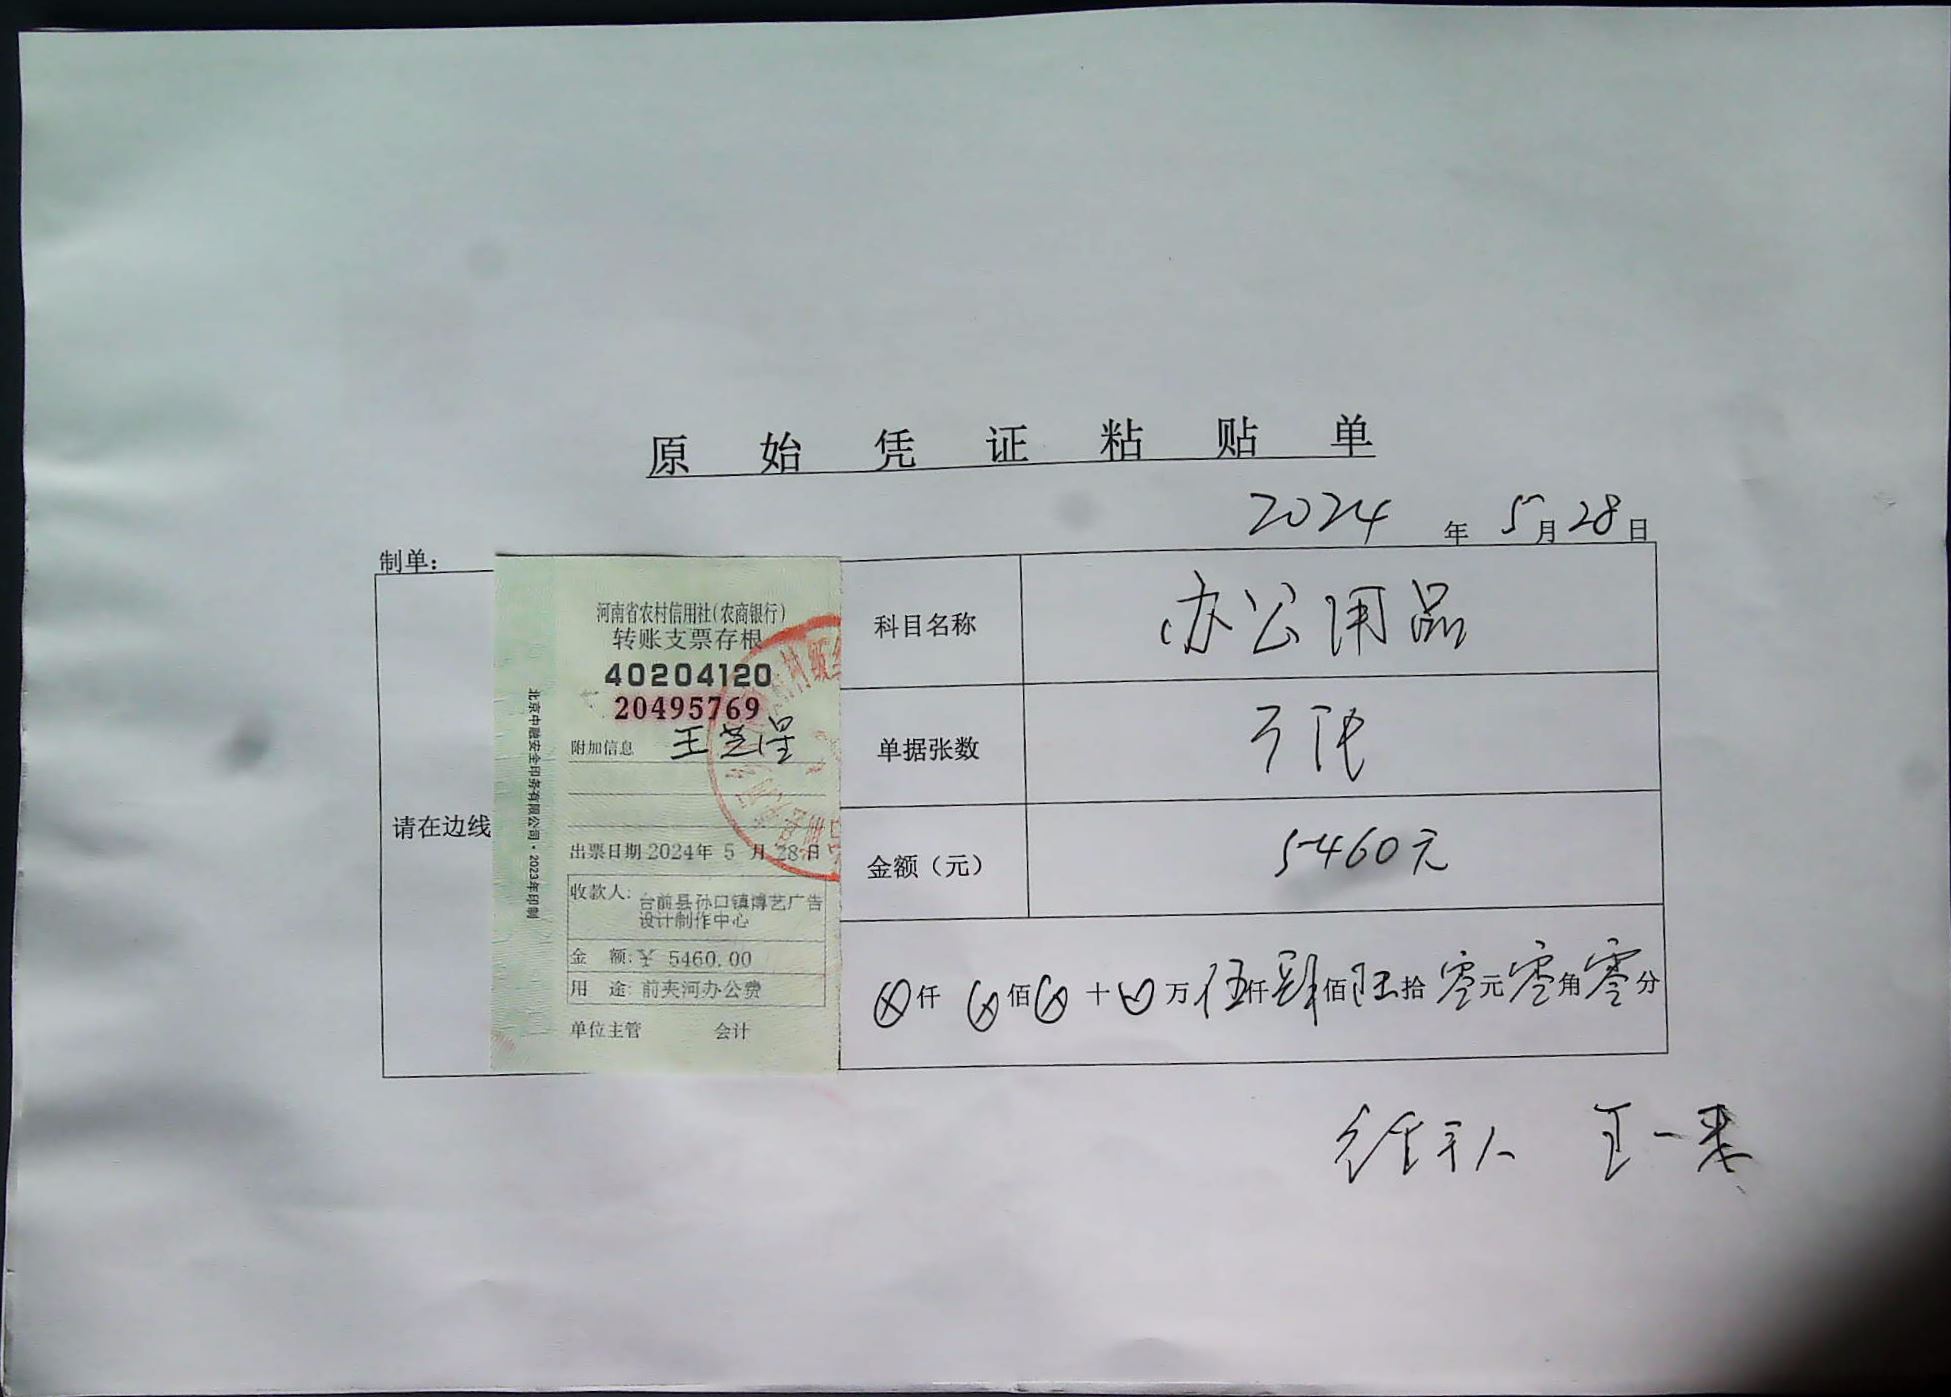 原始凭证粘贴单
2024年5月28日
制单：
请在边线
河南省农村信用社(农商银行)
转账支票存根
40204120
20495769
附加信息 王芝星
出票日期 2024年 5 月 28日
收款人: 台前县孙口镇博艺广告
设计制作中心
金 额: ¥ 5460.00
用 途: 前夹河办公费
单位主管 会计
北京中融安全印务有限公司·2023年印制
科目名称 办公用品
单据张数 张
金额（元） 5460元
仟 佰 十 万 伍仟肆佰陆拾零元零角零分
经手人 王一